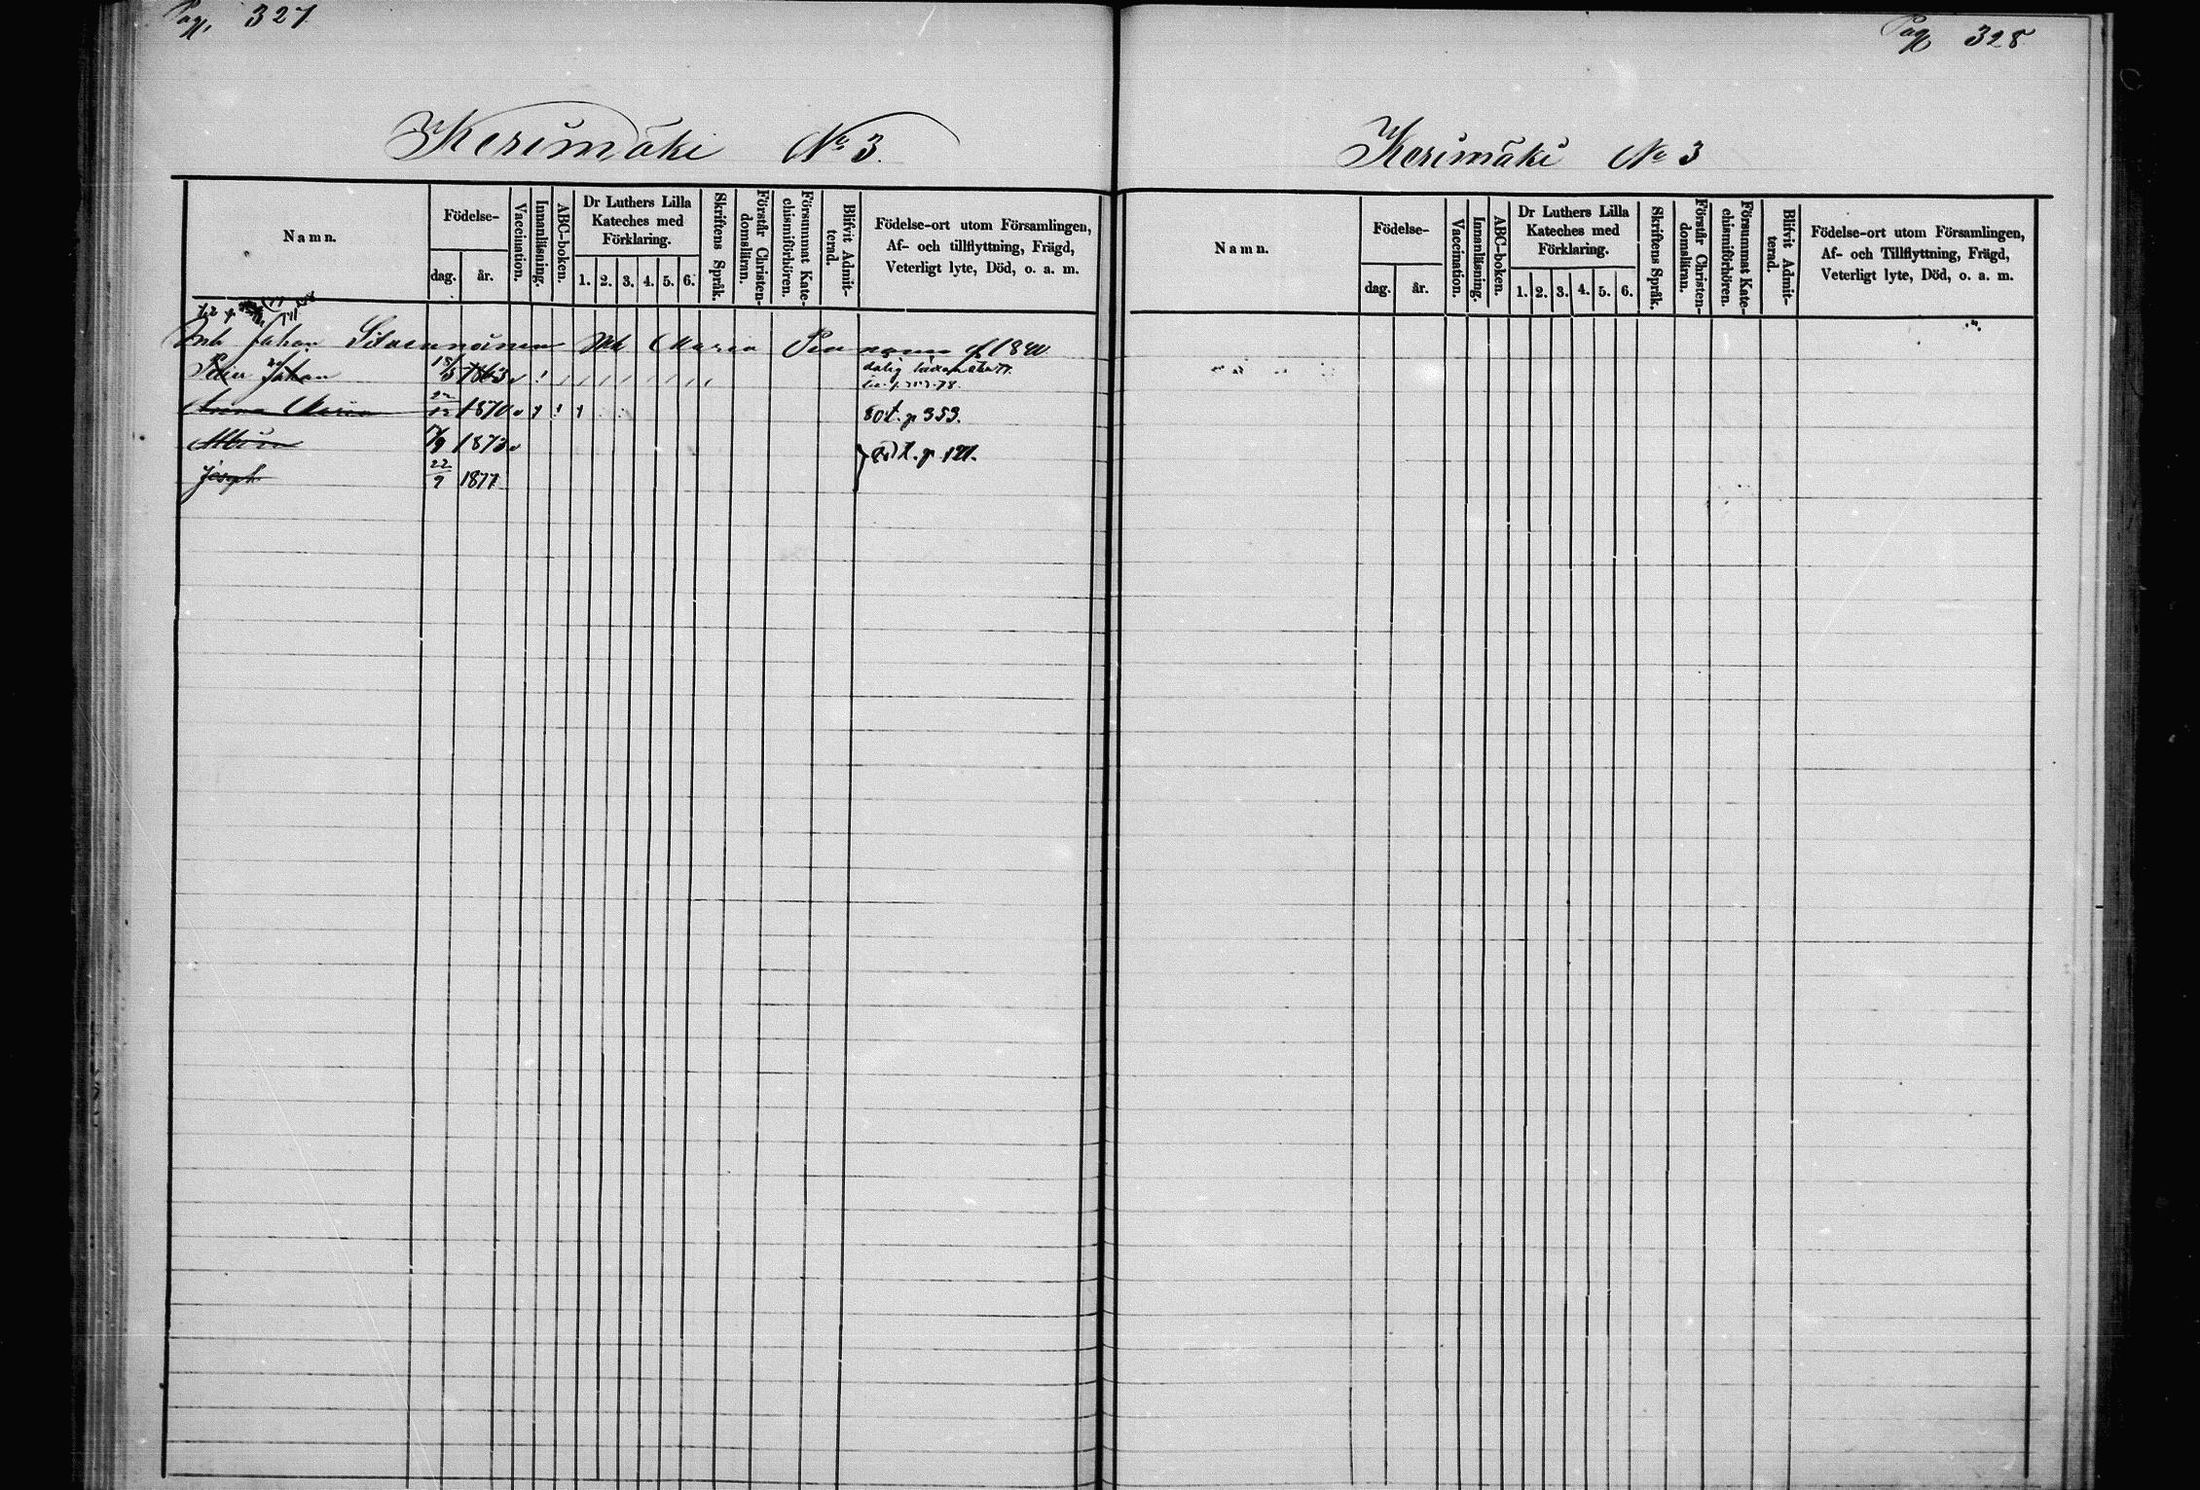 Pag. 327
Kerimäki No 3.
Namn.
Födelse-
dag.
år.
Vaccination.
Innanläsning.
ABC-boken.
Dr Luthers Lilla
Kateches med
Förklaring.
1. 2. 3. 4. 5. 6.
Skriftens Språk.
Förstår Christen-
domsläran.
Försummat Kate-
chismiförhören.
Blifvit Admit-
terad.
Födelse-ort utom Församlingen,
Af- och tillflyttning, Frägd,
Veterligt lyte, Död, o. a. m.
Johan Maria 1840
Johan 18/5 1863
Anna Maria 1870 p 353.
1873 p. 121.
Joseph 22/9 1877
Pag 328
Kerimäki No 3
Namn.
Födelse-
dag.
år.
Vaccination.
Innanläsning.
ABC-boken.
Dr Luthers Lilla
Kateches med
Förklaring.
1. 2. 3. 4. 5. 6.
Skriftens Språk.
Förstår Christen-
domsläran.
Försummat Kate-
chismiförhören.
Blifvit Admit-
terad.
Födelse-ort utom Församlingen,
Af- och Tillflyttning, Frägd,
Veterligt lyte, Död, o. a. m.